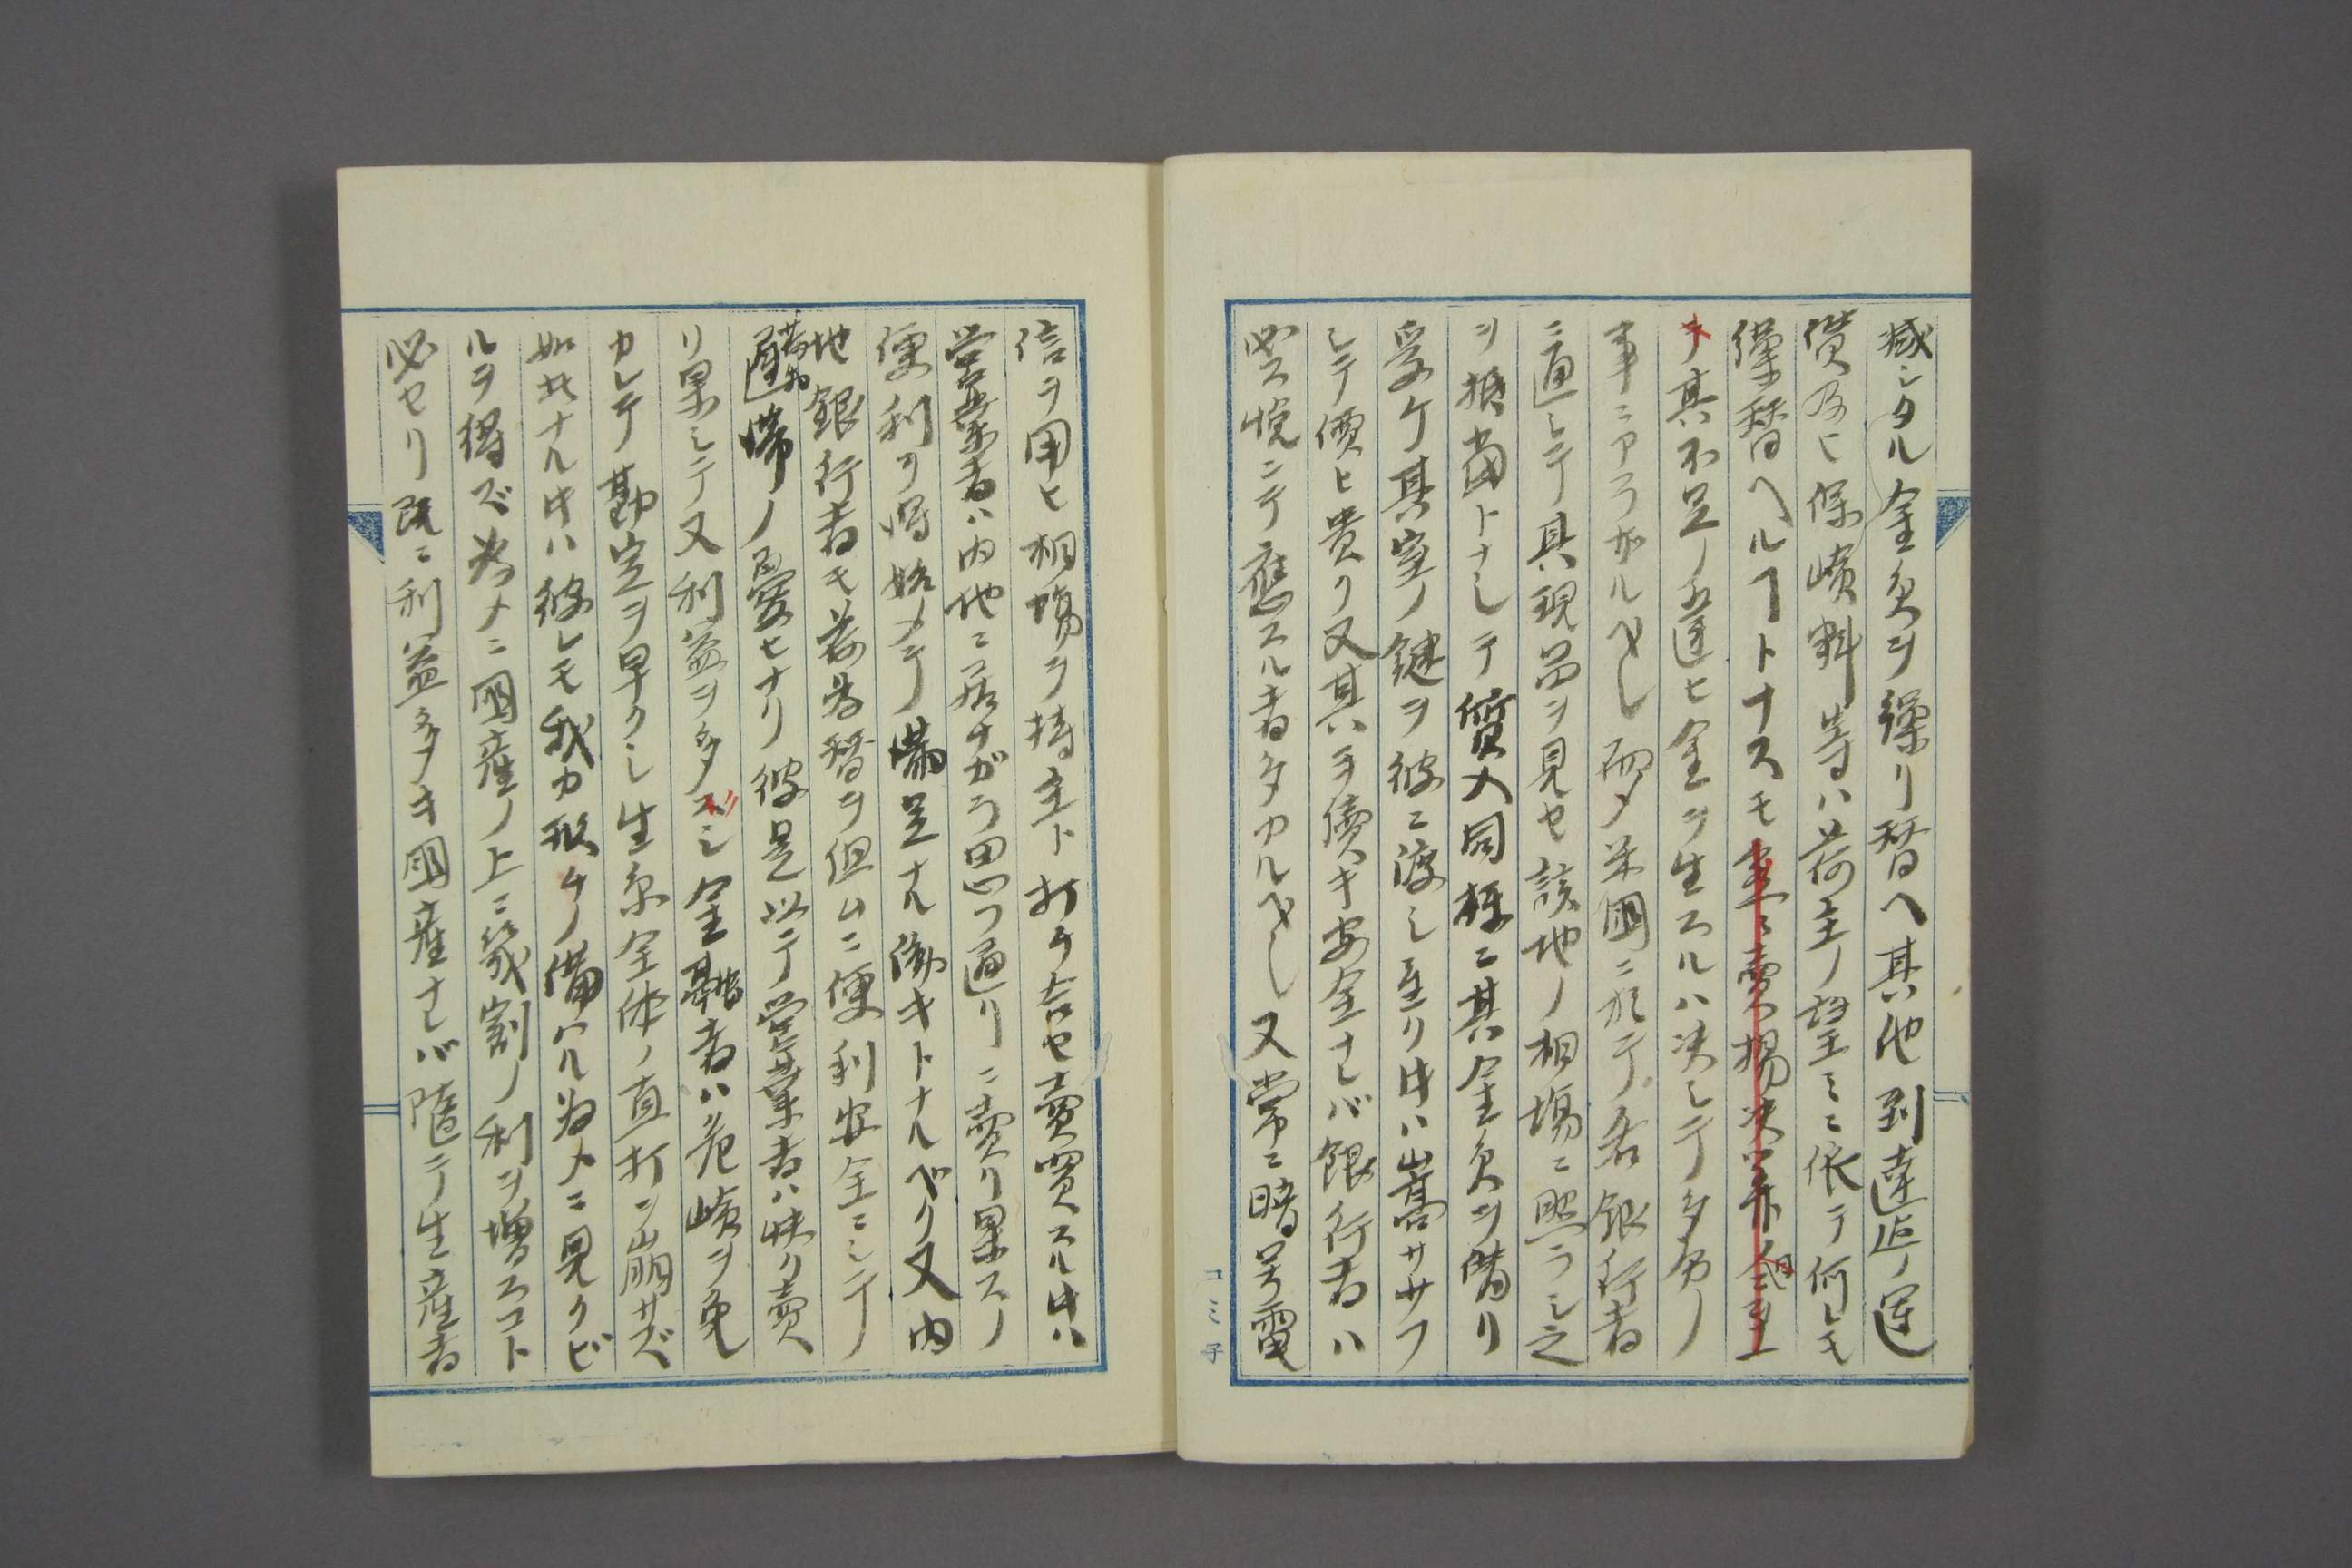 減シタル金負ヲ繰リ替ヘ其他到達迄ノ運
賃及ヒ保嶮料等ハ荷主ノ望ミニ依テ何レモ
繰替ヘルヿトナスモ賣揚決算
其不足ノ過金ヲ生スルハ決シテ多分ノ
事ニアラザルベシ而メ米國ニ於テ各銀行者
ニ通シテ具現品ヲ見セ該地ノ相場ニ照ラシ之
ヲ抵當トナシテ質入同様ニ其金負ヲ借リ
受ケ其室ノ鍵ヲ彼ニ渡シ至リ
シテ價ヒ貴ク又其ハ安全ナレバ銀行者ハ
必ス悦ンテ應スル者多カルベシ又常ニ暗号電
信ヲ用ヒ相場ヲ持主ト打チ合セ賣買スル片ハ
営業者ハ内地ニ居ナガラ思フ通リニ賣リ果スノ
便利ヲ得始メテ満足ナル働キトナルベク又内
地銀行者モ荷為替ヲ但ムニ便利安全ニシテ
滞ノ憂ヒナリ彼是以テ営業者ハ快ク賣
リ果シテ又利益ヲ多シ金融者ハ危嶮ヲ免
カレテ勘定ヲ早クシ生糸全体ノ直打ヲ崩サズ
如此ナル片ハ彼レモ我カ取ノ備ハル為メニ見クビ
ルヲ得ズ為メニ國産ノ上ニ幾割ノ利ヲ増スコト
必セリ既ニ利益多キ國産ナレバ随テ生産者
コミ子